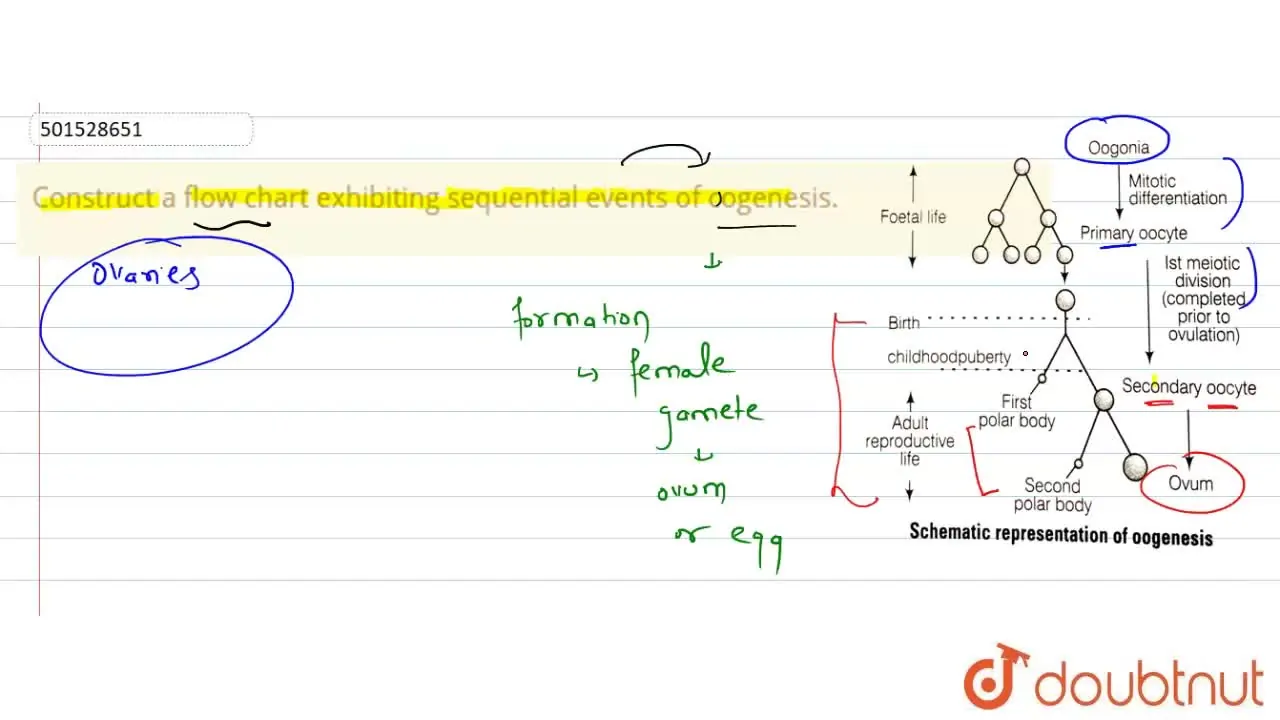 501528651
Construct a flow chart exhibiting sequential events of oogenesis.
Ovaries
formation
female
gamete
ovum
or egg
Oogonia
Mitotic
differentiation
Foetal life
Primary oocyte
Ist meiotic
division
(completed
prior to
ovulation)
Birth
childhoodpuberty
Secondary oocyte
First
polar body
Adult
reproductive
life
Second
polar body
Ovum
Schematic representation of oogenesis
doubtnut